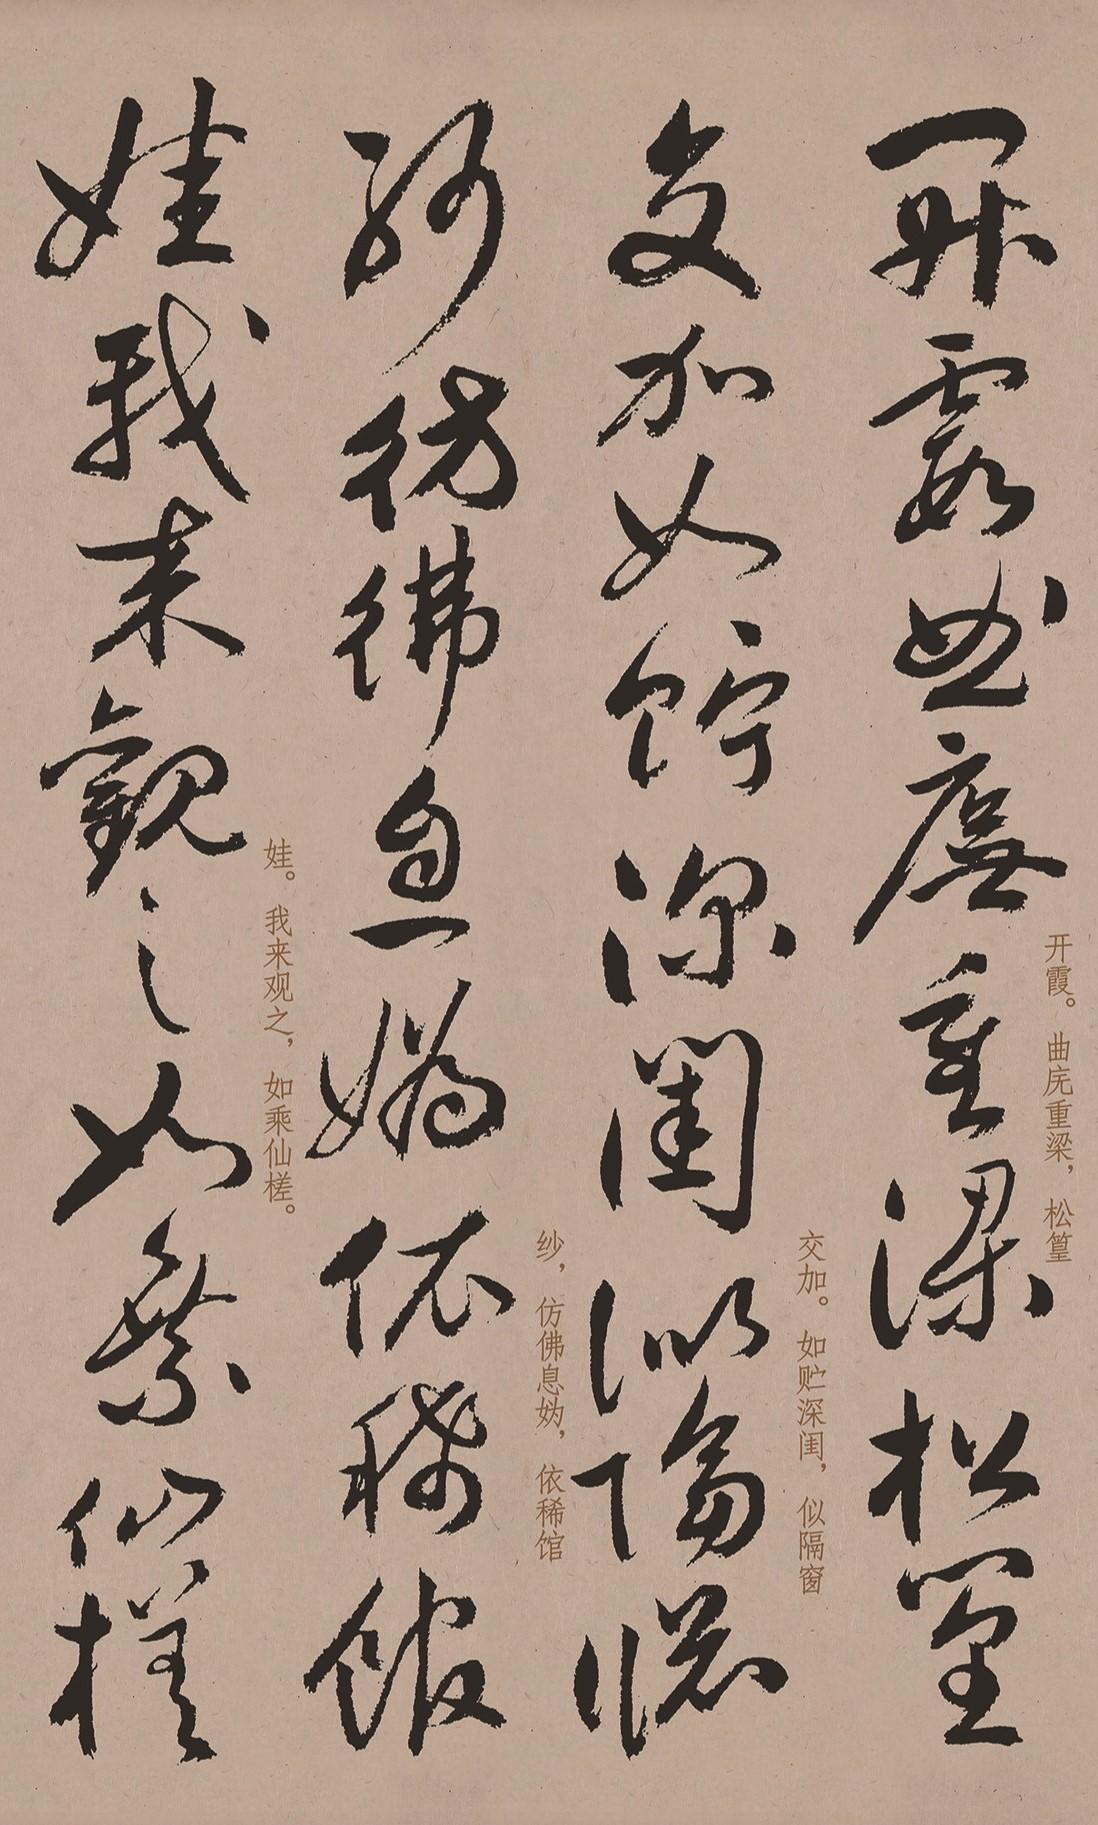 開霞曲廡重梁松篁
开霞。曲庑重梁，松篁
交加如貯深閨似隔牕
交加。如贮深闺，似隔窗
紗彷彿息媯依稀館
纱，仿佛息妫，依稀馆
娃我来觀之如乘仙槎
娃。我来观之，如乘仙槎。